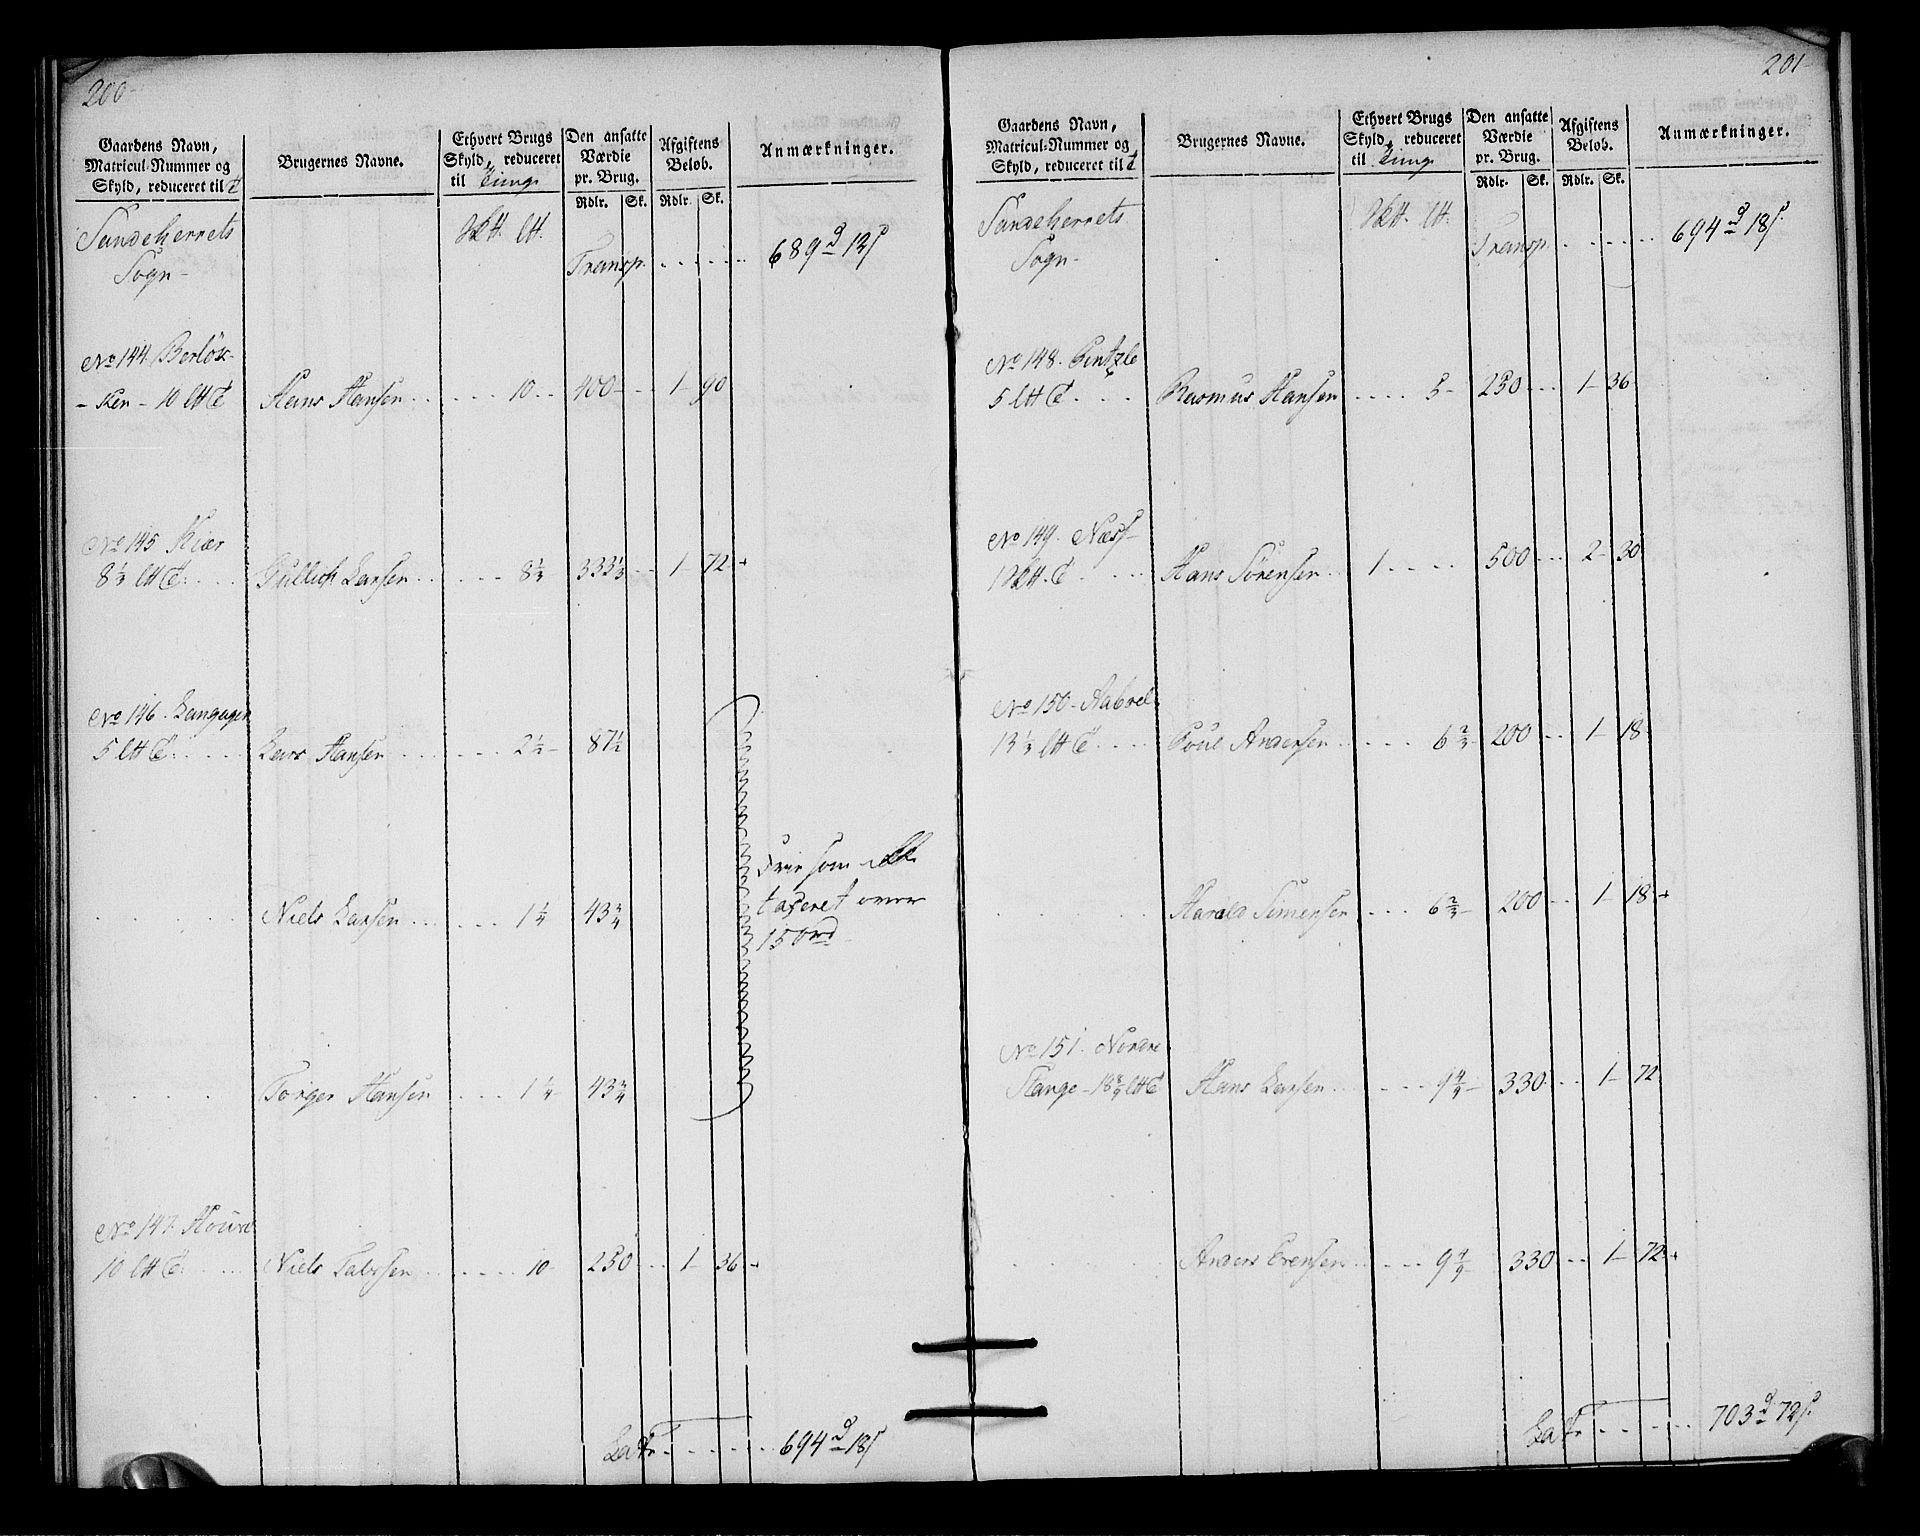 200
Gaardens Navn,
Matricul-Nummer og
Skyld, reduceret til
Brugernes Navne.
Ethvert Brugs
Skyld, reduceret
til Tunge
Den ansatte
Værdie
pr. Brug.
Rdlr. Sk.
Afgiftens
Beløb.
Rdlr. Sk.
Anmærkninger.
Sandeherrets
Sogn
Transp. 689 12
No 144. Berløk-
ken - 10 Hans Hansen 10 400 1 90
No 145 Kiær
8 1/3 Gullich Larsen 8 1/3 333 1/3 1 72
No 146. Langager
5 Lars Hansen 2 1/2 87 1/2
Niels Larsen 1 1/4 43 3/4
Frie som ikke
taxeret over
150 rd
Torger Hansen 1 1/4 43 3/4
No 147
10 Niels 10 250 1 36
Lat. 694 18
201
Gaardens Navn,
Matricul-Nummer og
Skyld, reduceret til
Brugernes Navne.
Ethvert Brugs
Skyld, reduceret
til Tunge
Den ansatte
Værdie
pr. Brug.
Rdlr. Sk.
Afgiftens
Beløb.
Rdlr. Sk.
Anmærkninger.
Sandeherrets
Sogn
Transp. 694 18
No 148.
5 Rasmus Hansen 5 250 1 36
No 149. Næss
1 Hans Sörensen 1 500 2 30
No 150
13 1/3 Poul Andersen 6 2/3 200 1 18
Harald Simensen 6 2/3 200 1 18
No 151. Nordre
Stange 18 8/9 Hans Larsen 9 4/9 330 1 72
Anders Evensen 9 4/9 330 1 72
Lat. 703 72